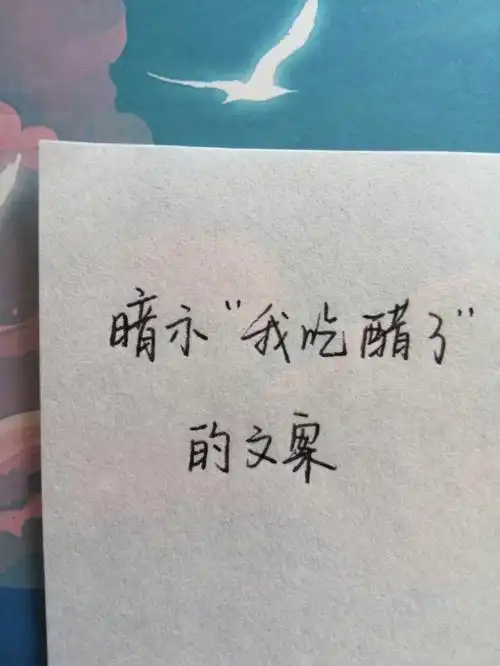 暗示"我吃醋了"
的文案